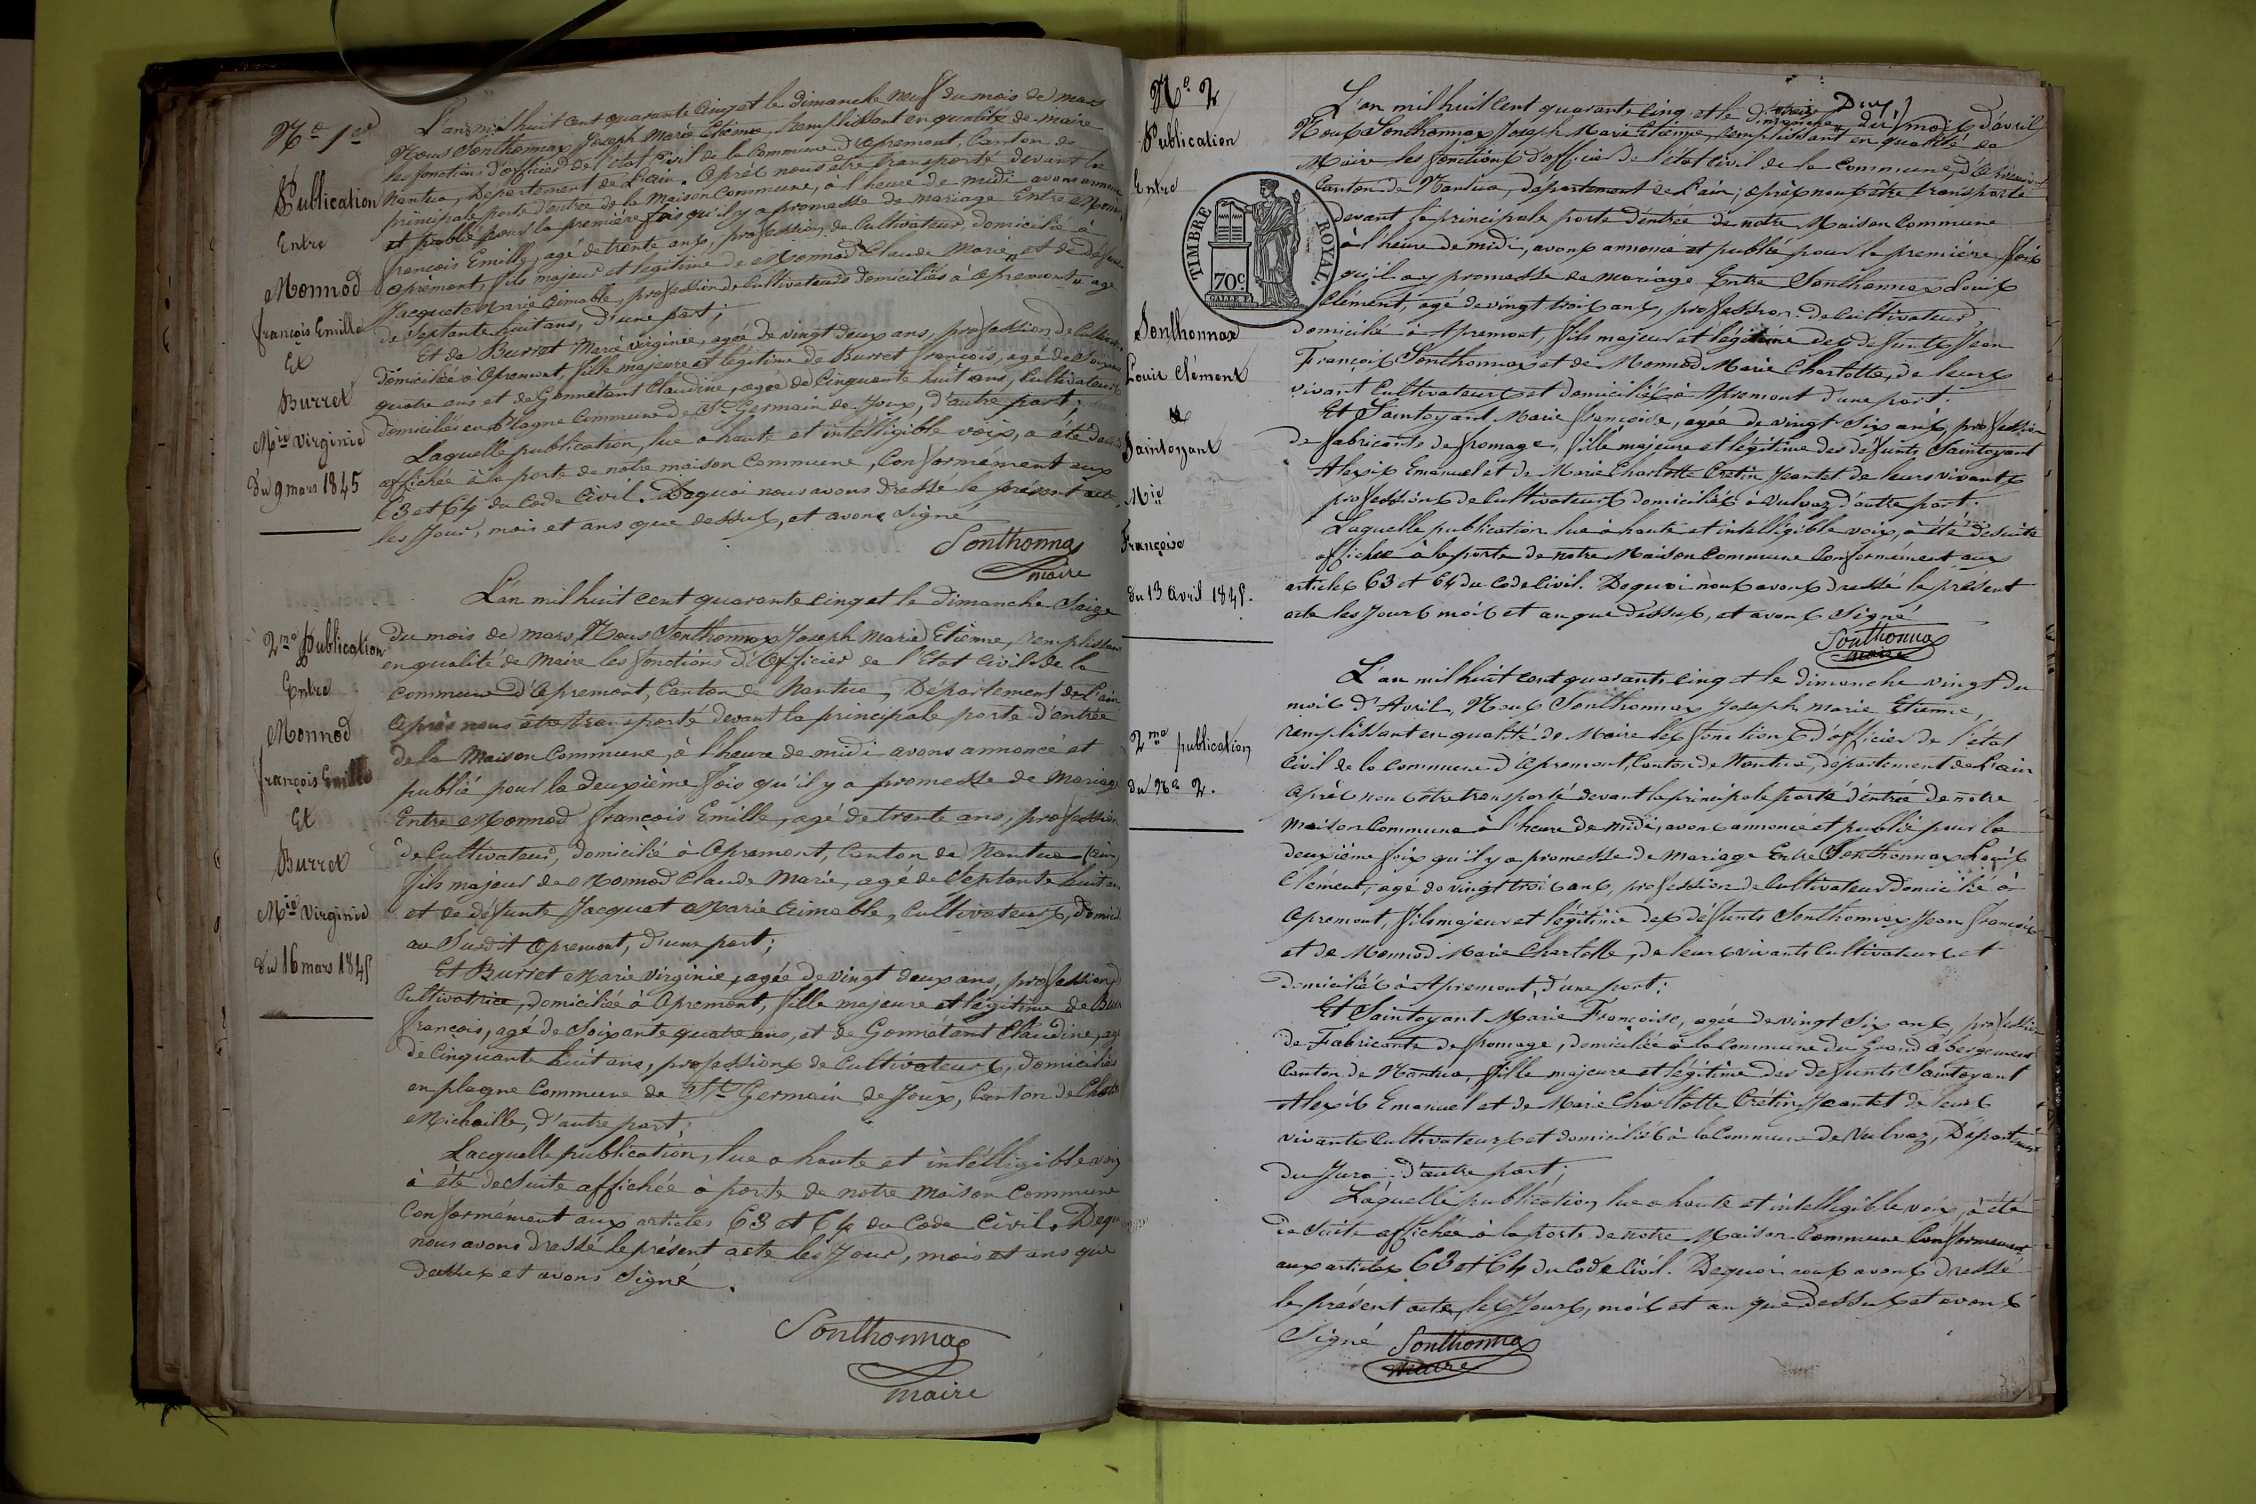 N.o 1er
Publication
Entre
Monnod
françois Emille
Et
Burret
Mie virginie
du 9 mars 1845
L'an mil huit cent quarante cinq et le dimanche neuf du mois de mars
Nous Sonthonnax Joseph Marie Etienne, Remplissant en qualité de maire
les fonctions d'officier de l'état Civil de la Commune d'Apremont, Canton de
Nantua, Département de L'ain. Après nous être transporté devant la
principale porte d'entrée de la Maison Commune, à l'heure de midi avons annoncé
et publié pour la première fois qu'il y a promesse de mariage Entre Monnod
françois Emille, agé de trente ans, profession de Cultivateur, domicilié à
Apremont, fils majeur et légitime de Monnod Claude Marie, et de défunte
Jacquet Marie Aimable, profession de Cultivateurs domiciliés à Apremont, agé
de Septante huit ans, d'une part;
Et de Burret Marie virginie, agée de vingt deux ans, profession de Cultivat
domiciliée à Apremont, fille majeure et légitime de Burret françois, agé de Soixante
quatre ans et de Gonnétant Claudine, agée de Cinquante huit ans, Cultivateurs
domiciliés en Plagne Commune de St Germain de Joux, d'autre part;
Laquelle publication, lue a haute et intelligible voix, a été de Suite
affichée à la porte de notre maison Commune, Conformément aux
63 et 64 du Code Civil. Dequoi nous avons dressé le présent acte
les Jour, mois et ans que dessus, et avons Signé
Sonthonnax
maire
2me Publication
Entre
Monnod
françois Emille
Et
Burret
Mie Virginie
du 16 mars 1845
L'an mil huit cent quarante cinq et le dimanche Seize
du mois de mars, Nous Sonthonnax Joseph Marie Etienne, remplissant
en qualité de Maire les fonctions d'Officier de l'Etat Civil de la
commune d'Apremont, Canton de Nantua, Département de L'ain
Après nous être transporté devant la principale porte d'entrée
de la Maison Commune, à l'heure de midi avons annoncé et
publié pour la deuxième fois qu'il y a promesse de Mariage
Entre Monnod françois Emille, agé de trente ans, profession
de Cultivateur, domicilié à Apremont, Canton de Nantua (ain)
fils majeur de Monnod Claude Marie, agé de Septante huit ans
et de défunte Jacquet Marie Aimable, Cultivateurs, domicil
au Sudit Apremont, d'une part;
Et Burret Marie virginie, agée de vingt deux ans, profession
Cultivatrice, domiciliée à Apremont, fille majeure et légitime de Burr
françois, agé de Soixante quatre ans, et de Gonnétant Claudine, agé
de Cinquante huit ans, professions de Cultivateurs, domiciliés
en plagne Commune de St Germain de Joux, Canton de Chatil
Michaille, d'autre part;
Lacquelle publication, lue a haute et intélligible voix
à été de Suite affichée à porte de notre Maison Commune
Conformément aux articles 63 et 64 du Code Civil. Dequoi
nous avons dressé le présent acte les Jour, mois et ans que
dessus et avons Signé.
Sonthonnax
maire
N.o 2
Publication
Entre
Sonthonnax
Louis Clément
&
Saintoyant
Mie
Françoise
du 13 Avril 1845.
TIMBRE ROYAL.
70c.
L'an mil huit cent quarante cinq et le dimanche du mois d'avril
Nous Sonthonnax Joseph Marie Etienne, remplissant en qualité de
Maire les fonctions d'officier de l'état Civil de la Commune d'Apremont
Canton de Nantua, département de L'ain; après nous être transporté
devant la principale porte d'entrée de notre Maison Commune
à l'heure de midi, avons annoncé et publié pour la première fois
qu'il a y promesse de mariage Entre Sonthonnax Louis
Clément, agé de vingt trois ans, profession de Cultivateur
domicilié à Apremont, fils majeur et légitime des défunts Jean
François Sonthonnax et de Monnod Marie Charlotte, de leurs
vivant Cultivateurs et domiciliés à Apremont d'une part.
Et Saintoyant Marie françoise, agée de vingt Six ans, profession
de fabricante de fromage, fille majeure et légitime des défunts Saintoyant
Alexis Emanuel et de Marie Charlotte Cretin Jeantet de leurs vivants
professions de Cultivateurs domiciliés à Vulvoz d'autre part.
Laquelle publication lue à haute et intelligible voix, a été de suite
affichée à la porte de notre Maison Commune Conformément aux
articles 63 et 64 du Code Civil. Dequoi nous avons dressé le présent
acte les Jours mois et an que dessus, et avons Signé
Sonthonnax
maire
2me publication
du No 2.
L'an mil huit cent quarante cinq et le dimanche vingt du
mois d'Avril, Nous Sonthonnax Joseph Marie Etienne,
remplissant en qualité de Maire les fonctions d'officier de l'état
Civil de la Commune d'Apremont, Canton de Nantua, département de L'ain
Après nous être transporté devant la principale porte d'entrée de notre
maison Commune à l'heure de midi, avons annoncé et publié pour la
deuxième fois qu'il y a promesse de mariage Entre Sonthonnax Louis
Clément, agé de vingt trois ans, profession de Cultivateur domicilié à
Apremont, fils majeur et légitime des défunts Sonthonnax Jean françois
et de Monnod Marie Charlotte, de leurs vivants Cultivateurs et
domiciliés à Apremont, d'une part;
Et Saintoyant Marie Françoise, agée de vingt Six ans, profession
de Fabricante de fromage, domiciliée à la Commune du Grand abergement
Canton de Nantua, fille majeure et légitime des défunts Saintoyant
Alexis Emanuel et de Marie Charlotte Crétin Jeantet de leurs
vivants Cultivateurs et domiciliés à la Commune de Vulvoz, Département
du Jura: d'autre part;
Laquelle publication, lue a haute et intelligible voix, a été
de Suite affichée à la porte de notre Maison Commune Conformement
aux articles 63 et 64 du Code Civil. Dequoi nous avons dressé
le présent acte, les Jours, mois et an que dessus et avons
Signé Sonthonnax
maire